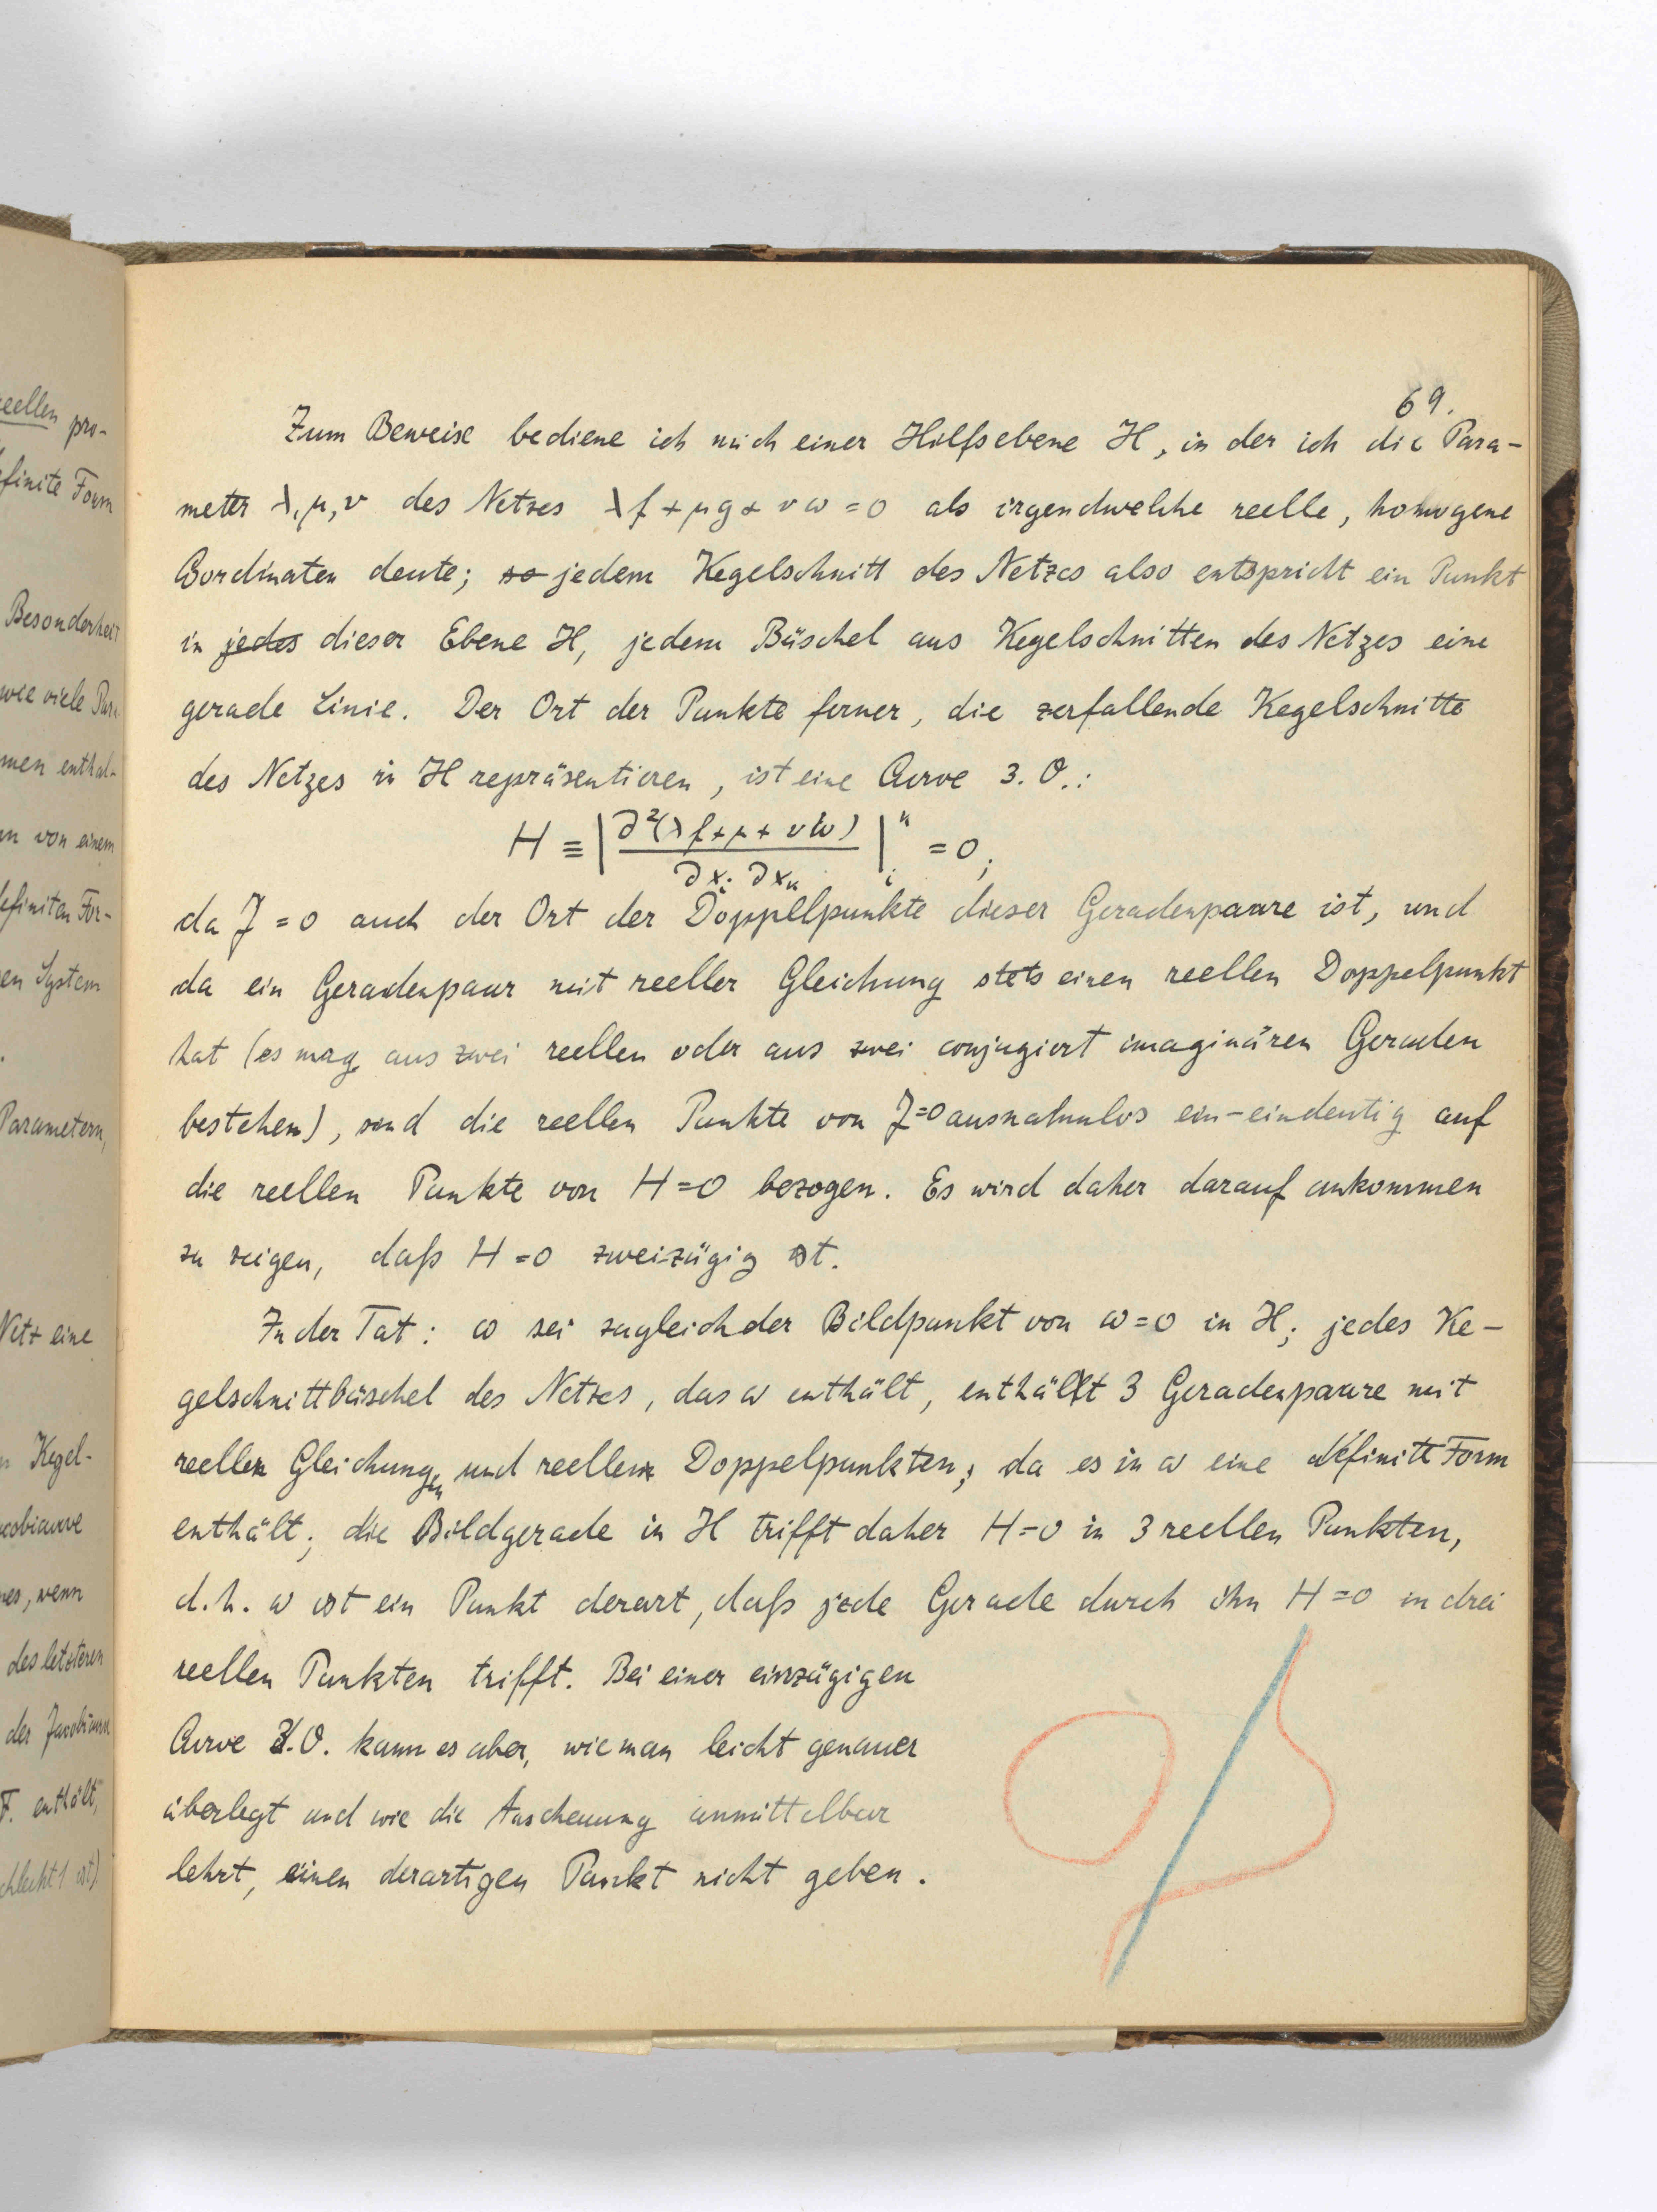 eellen pro-
efinite Form
Besonderheit
wie viele Par
men enthal-
n von einem
definiten For-
en System
Parametern,
Netz eine
n Kegel-
acobicurve
nes, wenn
des letzteren
der Jacobicurve
F. enthält,
schlecht 1 ist)
69.
Zum Beweise bediene ich mich einer Hilfsebene H, in der ich die Para-
meter λ, μ, ν des Netzes λf + μg + νω = 0 als irgendwelche reelle, homogene
Coordinaten deute; so jedem Kegelschnitt des Netzes also entspricht ein Punkt
in jedes dieser Ebene H, jedem Büschel aus Kegelschnitten des Netzes eine
gerade Linie. Der Ort der Punkte ferner, die zerfallende Kegelschnitte
des Netzes in H repräsentieren, ist eine Curve 3. O.:
H ≡ | ∂²(λf + μ + νω) / ∂xᵢ ∂xₖ |ᵢᵏ = 0;
da J = 0 auch der Ort der Doppelpunkte dieser Geradenpaare ist, und
da ein Geradenpaar mit reeller Gleichung stets einen reellen Doppelpunkt
hat (es mag aus zwei reellen oder aus zwei conjugiert imaginären Geraden
bestehen), sind die reellen Punkte von J=0 ausnahmlos ein-eindeutig auf
die reellen Punkte von H=0 bezogen. Es wird daher darauf ankommen
zu zeigen, daß H=0 zweizügig ist.
In der Tat: ω sei zugleich der Bildpunkt von ω=0 in H; jedes Ke-
gelschnittbüschel des Netzes, das ω enthält, enthält 3 Geradenpaare mit
reellen Gleichungen und reellen Doppelpunkten, da es in ω eine definite Form
enthält; die Bildgerade in H trifft daher H=0 in 3 reellen Punkten,
d.h. ω ist ein Punkt derart, daß jede Gerade durch ihn H=0 in drei
reellen Punkten trifft. Bei einer einzügigen
Curve 3.O. kann es aber, wie man leicht genauer
überlegt und wie die Anschauung unmittelbar
lehrt, einen derartigen Punkt nicht geben.